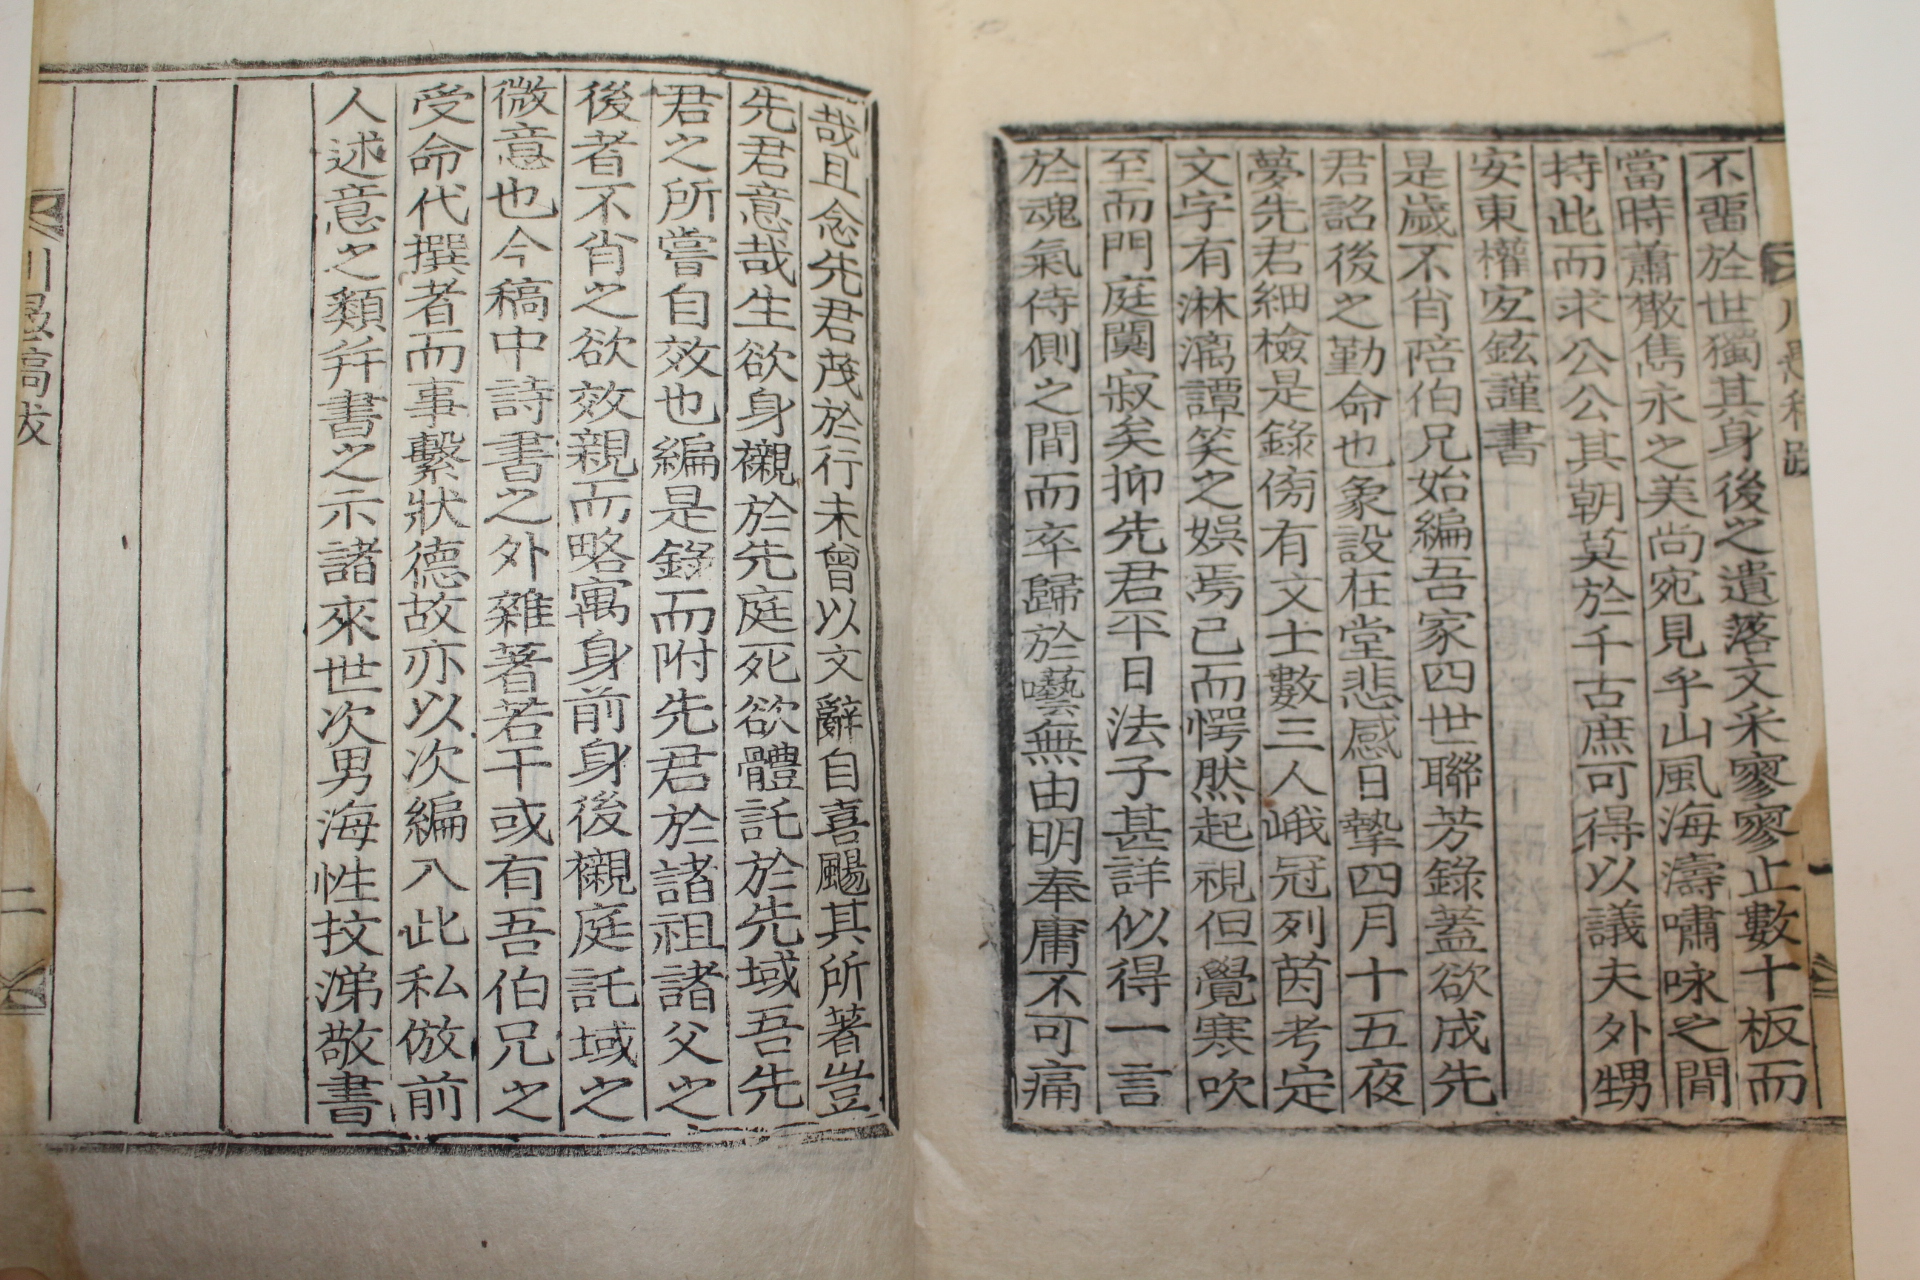 不畱於世獨其身後之遺落文采寥寥止數十板而
當時蕭散雋永之美尚宛見乎山風海濤嘯咏之間
持此而求公公其朝莫於千古庶可得以議夫外甥
安東權宖鉉謹書
是歲不肖陪伯兄始編吾家四世聯芳錄蓋欲成先
君詒後之勤命也象設在堂悲感日摯四月十五夜
夢先君細檢是錄傍有文士數三人峨冠列茵考定
文字有淋漓譚笑之娛焉已而愕然起視但覺寒吹
至而門庭闃寂矣抑先君平日法子甚詳似得一言
於魂氣侍側之間而卒歸於囈無由明奉庸不可痛
哉且念先君茂於行未曾以文辭自喜颺其所著豈
先君意哉生欲身襯於先庭死欲體託於先域吾先
君之所嘗自效也編是錄而附先君於諸祖諸父之
後者不肖之欲效親而略寓身前身後襯庭託域之
微意也今稿中詩書之外雜著若干或有吾伯兄之
受命代撰者而事繫狀德故亦以次編入此私倣前
人述意之類幷書之示諸來世次男海性抆涕敬書
川愚稿跋
二